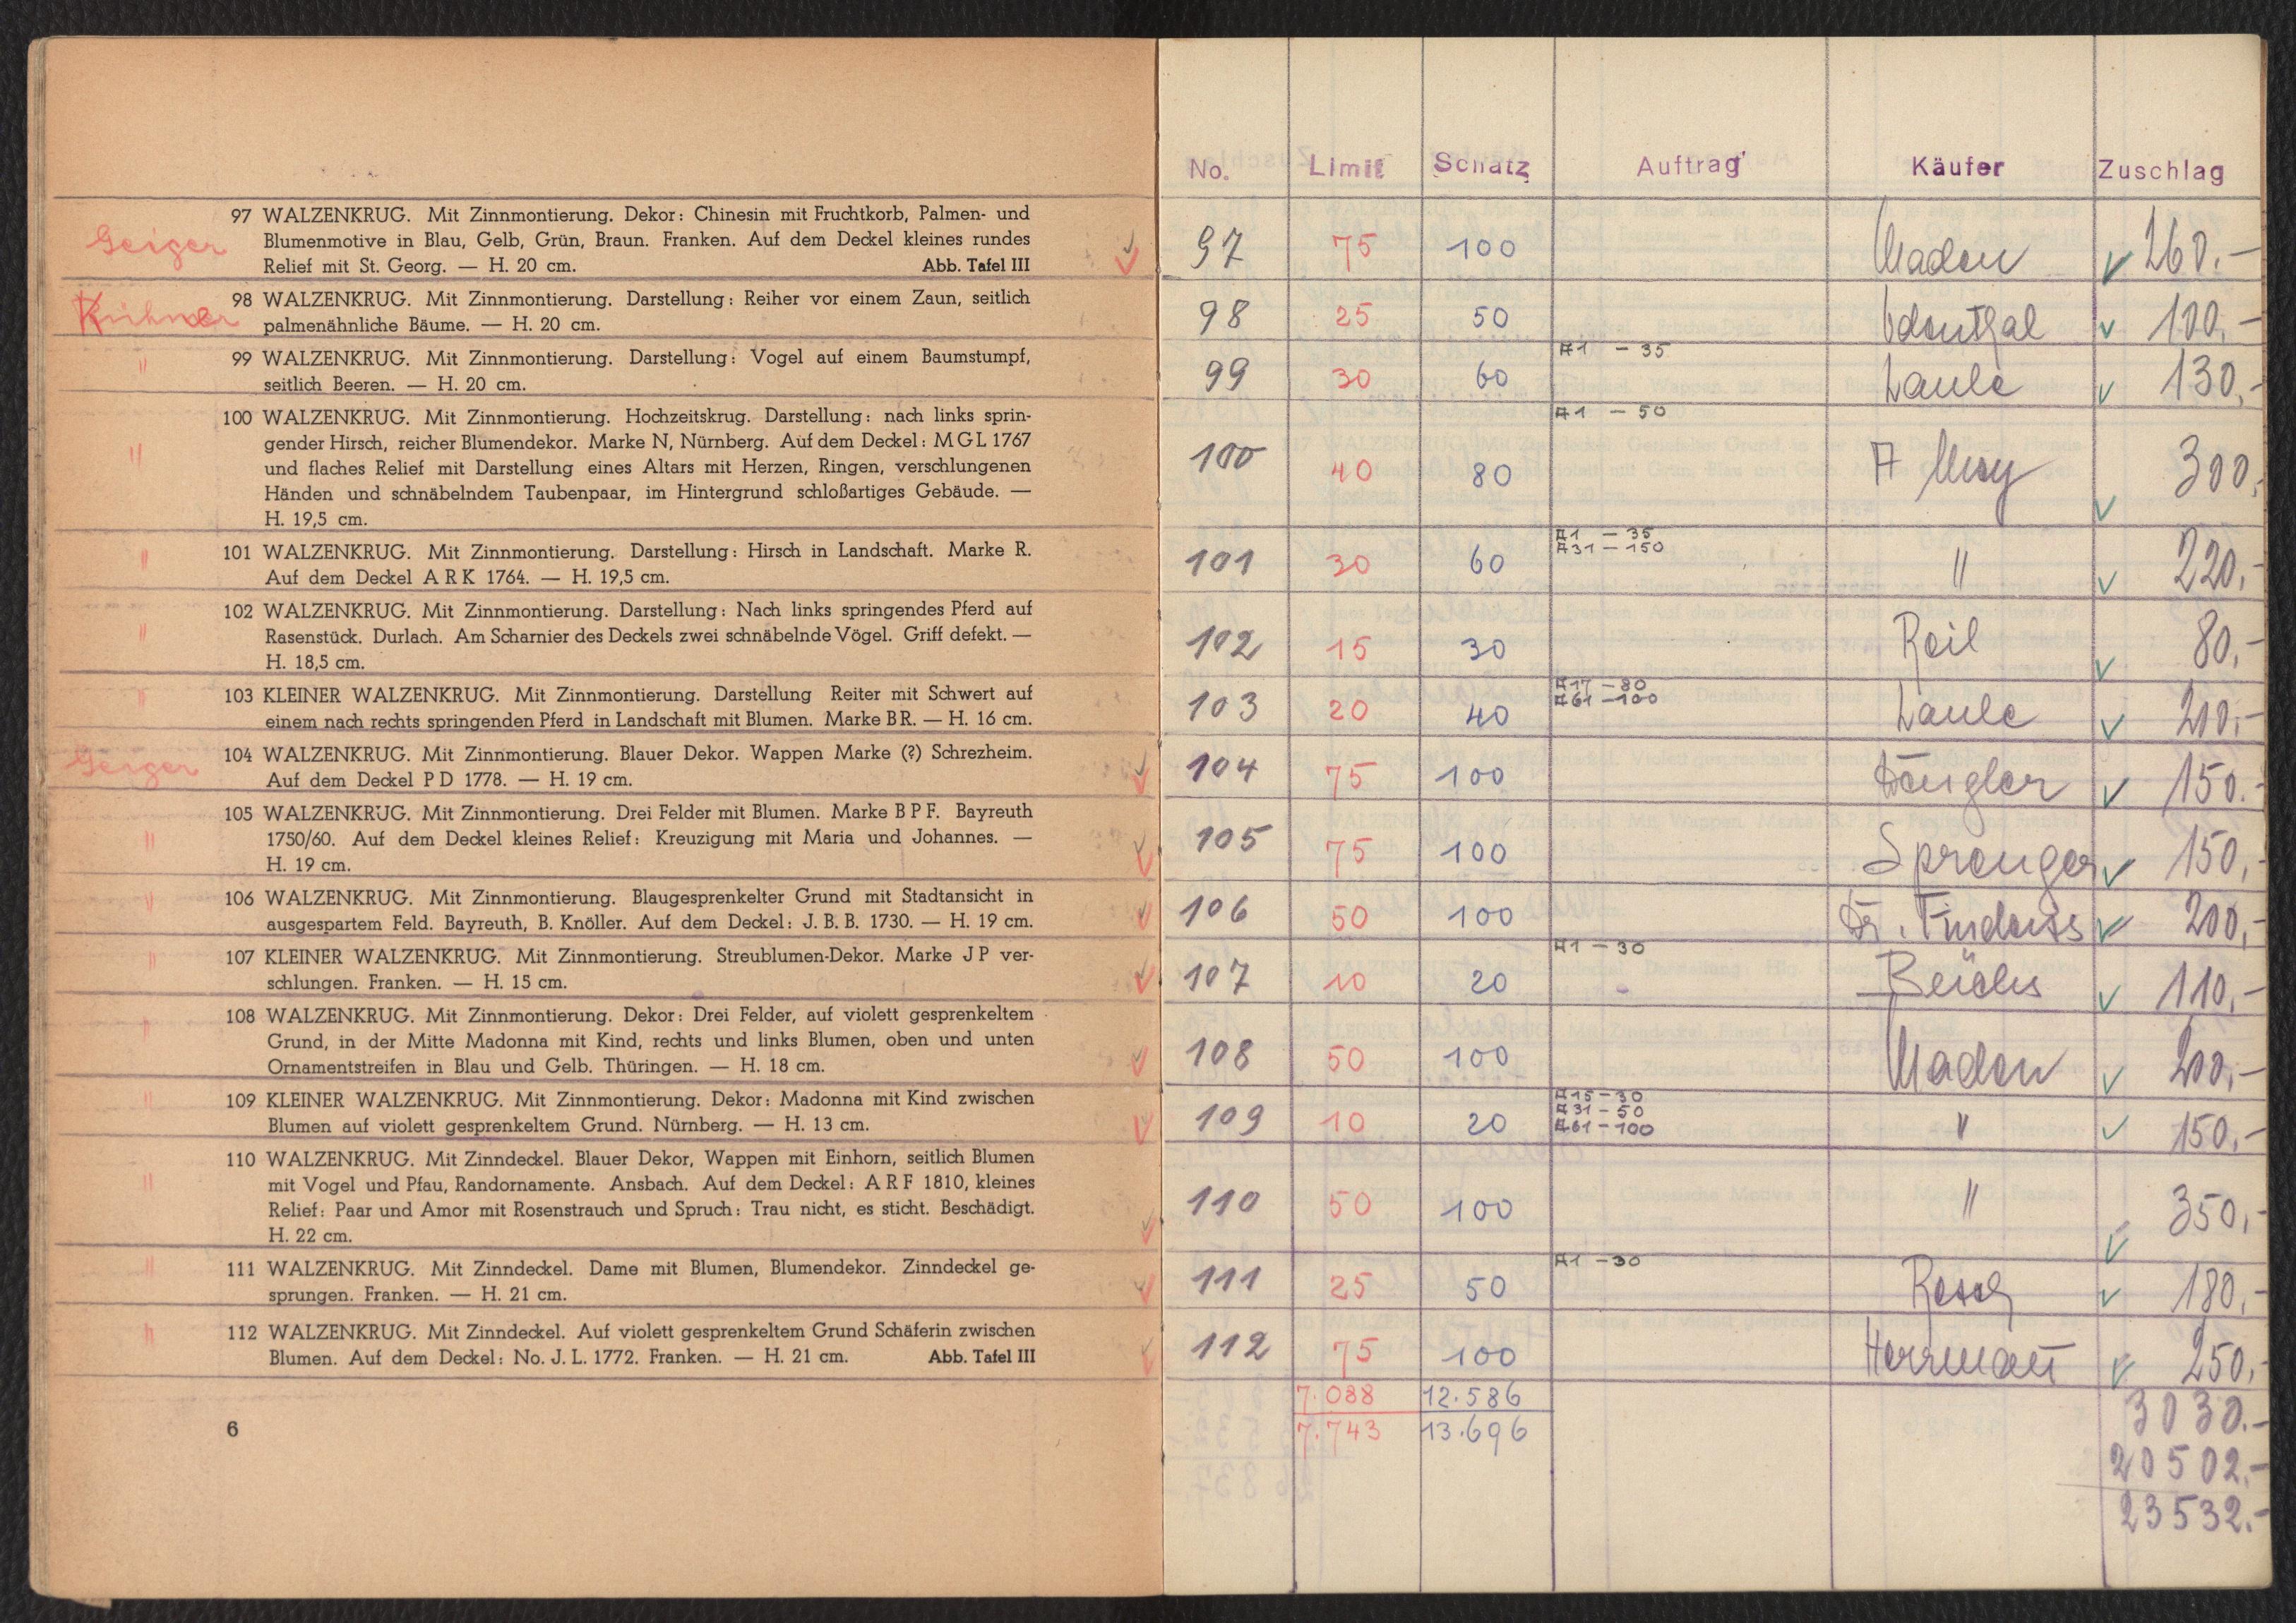 97 WALZENKRUG. Mit Zinnmontierung. Dekor: Chinesin mit Fruchtkorb, Palmen- und
Geiger
Blumenmotive in Blau, Gelb, Grün, Braun. Franken. Auf dem Deckel kleines rundes
Relief mit St. Georg. — H. 20 cm. Abb. Tafel III
98 WALZENKRUG. Mit Zinnmontierung. Darstellung: Reiher vor einem Zaun, seitlich
Kühner
palmenähnliche Bäume. — H. 20 cm.
99 WALZENKRUG. Mit Zinnmontierung. Darstellung: Vogel auf einem Baumstumpf,
"
seitlich Beeren. — H. 20 cm.
100 WALZENKRUG. Mit Zinnmontierung. Hochzeitskrug. Darstellung: nach links sprin-
gender Hirsch, reicher Blumendekor. Marke N, Nürnberg. Auf dem Deckel: M G L 1767
" und flaches Relief mit Darstellung eines Altars mit Herzen, Ringen, verschlungenen
Händen und schnäbelndem Taubenpaar, im Hintergrund schloßartiges Gebäude. —
H. 19,5 cm.
" 101 WALZENKRUG. Mit Zinnmontierung. Darstellung: Hirsch in Landschaft. Marke R.
Auf dem Deckel A R K 1764. — H. 19,5 cm.
102 WALZENKRUG. Mit Zinnmontierung. Darstellung: Nach links springendes Pferd auf
" Rasenstück. Durlach. Am Scharnier des Deckels zwei schnäbelnde Vögel. Griff defekt. —
H. 18,5 cm.
" 103 KLEINER WALZENKRUG. Mit Zinnmontierung. Darstellung Reiter mit Schwert auf
einem nach rechts springenden Pferd in Landschaft mit Blumen. Marke BR. — H. 16 cm.
Geiger 104 WALZENKRUG. Mit Zinnmontierung. Blauer Dekor. Wappen Marke (?) Schrezheim.
Auf dem Deckel P D 1778. — H. 19 cm.
105 WALZENKRUG. Mit Zinnmontierung. Drei Felder mit Blumen. Marke B P F. Bayreuth
" 1750/60. Auf dem Deckel kleines Relief: Kreuzigung mit Maria und Johannes. —
H. 19 cm.
" 106 WALZENKRUG. Mit Zinnmontierung. Blaugesprenkelter Grund mit Stadtansicht in
ausgespartem Feld. Bayreuth, B. Knöller. Auf dem Deckel: J. B. B. 1730. — H. 19 cm.
" 107 KLEINER WALZENKRUG. Mit Zinnmontierung. Streublumen-Dekor. Marke J P ver-
schlungen. Franken. — H. 15 cm.
" 108 WALZENKRUG. Mit Zinnmontierung. Dekor: Drei Felder, auf violett gesprenkeltem
Grund, in der Mitte Madonna mit Kind, rechts und links Blumen, oben und unten
Ornamentstreifen in Blau und Gelb. Thüringen. — H. 18 cm.
" 109 KLEINER WALZENKRUG. Mit Zinnmontierung. Dekor: Madonna mit Kind zwischen
Blumen auf violett gesprenkeltem Grund. Nürnberg. — H. 13 cm.
110 WALZENKRUG. Mit Zinndeckel. Blauer Dekor, Wappen mit Einhorn, seitlich Blumen
" mit Vogel und Pfau, Randornamente. Ansbach. Auf dem Deckel: A R F 1810, kleines
Relief: Paar und Amor mit Rosenstrauch und Spruch: Trau nicht, es sticht. Beschädigt.
H. 22 cm.
" 111 WALZENKRUG. Mit Zinndeckel. Dame mit Blumen, Blumendekor. Zinndeckel ge-
sprungen. Franken. — H. 21 cm.
" 112 WALZENKRUG. Mit Zinndeckel. Auf violett gesprenkeltem Grund Schäferin zwischen
Blumen. Auf dem Deckel: No. J. L. 1772. Franken. — H. 21 cm. Abb. Tafel III
6
No. Limit Schatz Auftrag Käufer Zuschlag
97 75 100 260.-
98 25 50 100,-
A1 - 35
99 30 60 Laule 130,-
A1 - 50
100 40 80 A 300,
A1 - 35
A31 - 150
101 30 60 " 220,-
102 15 30 Reil 80,-
A17 - 80
A61 - 100
103 20 40 Laule 200,-
104 75 100 150.-
105 75 100 Sprenger 150,-
106 50 100 Dr. 200,-
A1 - 30
107 10 20 110,-
108 50 100 200,-
A15 - 30
A31 - 50
A61 - 100
109 10 20 " 150,-
110 50 100 " 350,-
A1 - 30
111 25 50 Resch 180,-
112 75 100 Herrmann 250,-
7.088 12.586 3030.-
7.743 13.696 20502.-
23532.-